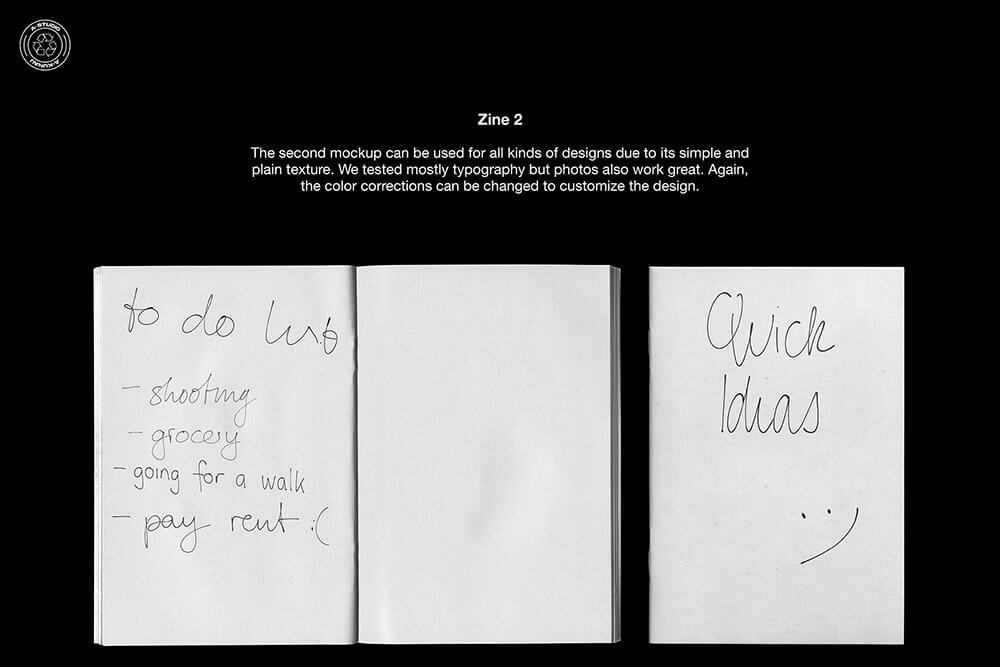 A-STUDIO
Zine 2
The second mockup can be used for all kinds of designs due to its simple and
plain texture. We tested mostly typography but photos also work great. Again,
the color corrections can be changed to customize the design.
to do list
- shooting
- grocery
- going for a walk
- pay rent :(
Quick
Ideas
:)